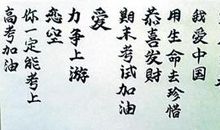 我爱中国
用生命去珍惜
恭喜发财
期末考试加油
爱
力争上游
恋空
你一定能考上
高考加油